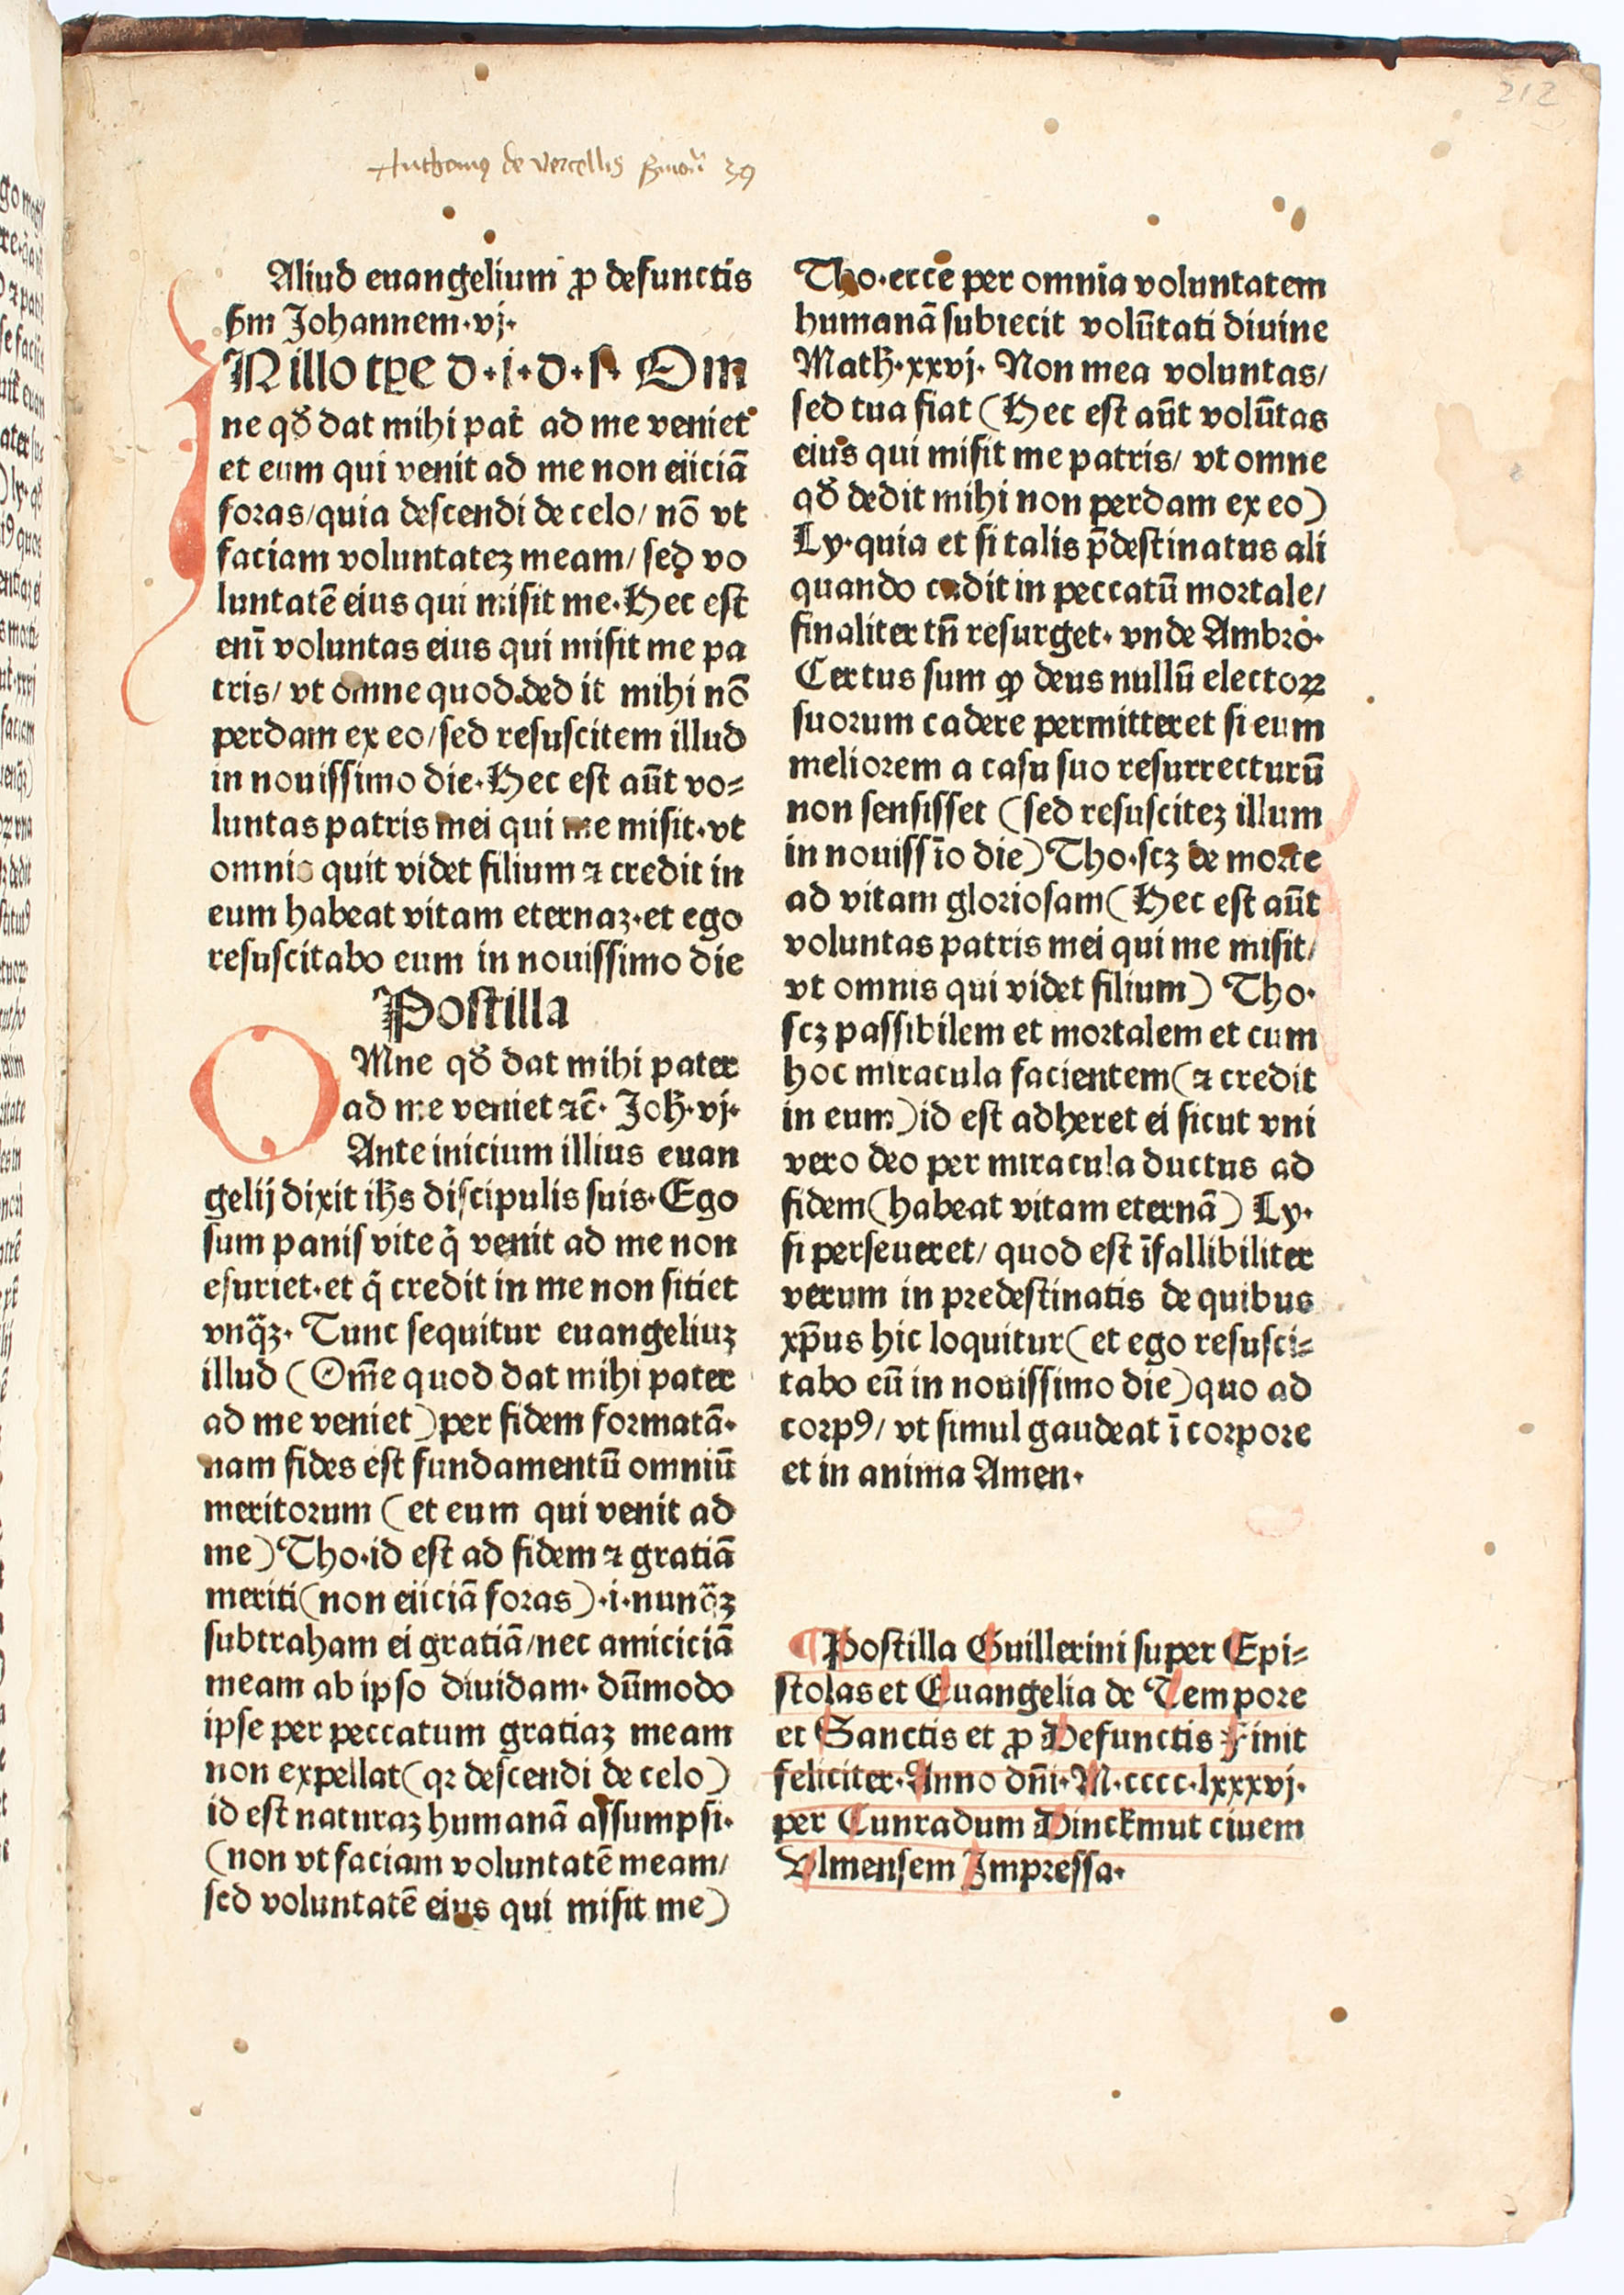 212
Anthoniꝰ de vercellis 39
Aliud euangelium ꝓ defunctis
ẜm Johannem·vj·
IN illo tꝑe d·i·d·s· Om
ne qđ dat mihi pat̄ ad me veniet
et eum qui venit ad me non eiiciā
foras/quia descendi de celo/ nō vt
faciam voluntateꝫ meam/ sed vo
luntatē eius qui misit me·Hec est
enī voluntas eius qui misit me pa
tris/ vt omne quod ded it mihi nō
perdam ex eo/sed resuscitem illud
in nouissimo die·Hec est aūt vo⸗
luntas patris mei qui me misit·vt
omnis quit videt filium ⁊ credit in
eum habeat vitam eternaꝫ·et ego
resuscitabo eum in nouissimo die
Postilla
OMne qđ dat mihi pater
ad me veniet ⁊c̄· Joħ·vj·
Ante inicium illius euan
gelij dixit iħs discipulis suis·Ego
sum panis vite q̇ venit ad me non
esuriet·et q̇ credit in me non sitiet
vnq̄ꝫ· Tunc sequitur euangeliuꝫ
illud (Om̄e quod dat mihi pater
ad me veniet)per fidem formatā·
nam fides est fundamentū omniū
meritorum (et eum qui venit ad
me)Tho·id est ad fidem ⁊ gratiā
meriti(non eiiciā foras)·i·nunq̄ꝫ
subtraham ei gratiā/nec amiciciā
meam ab ipso diuidam· dūmodo
ipse per peccatum gratiaꝫ meam
non expellat(qꝛ descendi de celo)
id est naturaꝫ humanā assumpsi·
(non vt faciam voluntatē meam/
sed voluntatē eius qui misit me)
Tho·ecce per omnia voluntatem
humanā subiecit volūtati diuine
Matħ·xxvj· Non mea voluntas/
sed tua fiat (Hec est aūt volūtas
eius qui misit me patris/ vt omne
qđ dedit mihi non perdam ex eo)
Ly·quia et si talis p̄destinatus ali
quando cadit in peccatū mortale/
finaliter tn̄ resurget· vnde Ambro·
Certus sum ꝙ deus nullū electoꝝ
suorum cadere permitteret si eum
meliorem a casu suo resurrecturū
non sensisset (sed resusciteꝫ illum
in nouissīo die)Tho·scꝫ de morte
ad vitam gloriosam(Hec est aūt
voluntas patris mei qui me misit/
vt omnis qui videt filium) Tho·
scꝫ passibilem et mortalem et cum
hoc miracula facientem(⁊ credit
in eum)id est adheret ei sicut vni
vero deo per miracula ductus ad
fidem(habeat vitam eternā) Ly·
si perseueret/ quod est īfallibiliter
verum in predestinatis de quibus
xp̄us hic loquitur(et ego resusci⸗
tabo eū in nouissimo die)quo ad
corpꝰ/ vt simul gaudeat ī corpore
et in anima Amen·
¶Postilla Guillerini super Epi⸗
stolas et Euangelia de Tempore
et Sanctis et ꝓ Defunctis Finit
feliciter·Anno dn̄i·M·cccc·lxxxvj·
per Cunradum Dinckmut ciuem
Vlmensem Impressa·